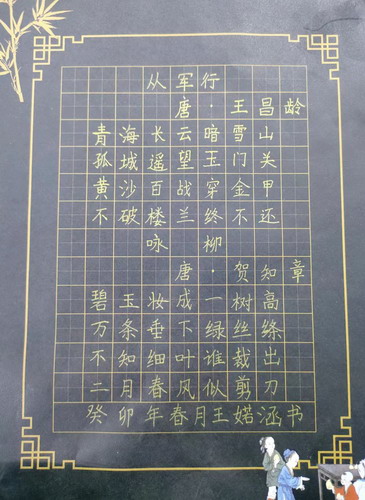 从军行
唐·王昌龄
青海长云暗雪山
孤城遥望玉门关
黄沙百战穿金甲
不破楼兰终不还
咏柳
唐·贺知章
碧玉妆成一树高
万条垂下绿丝绦
不知细叶谁裁出
二月春风似剪刀
癸卯年春月王婼涵书